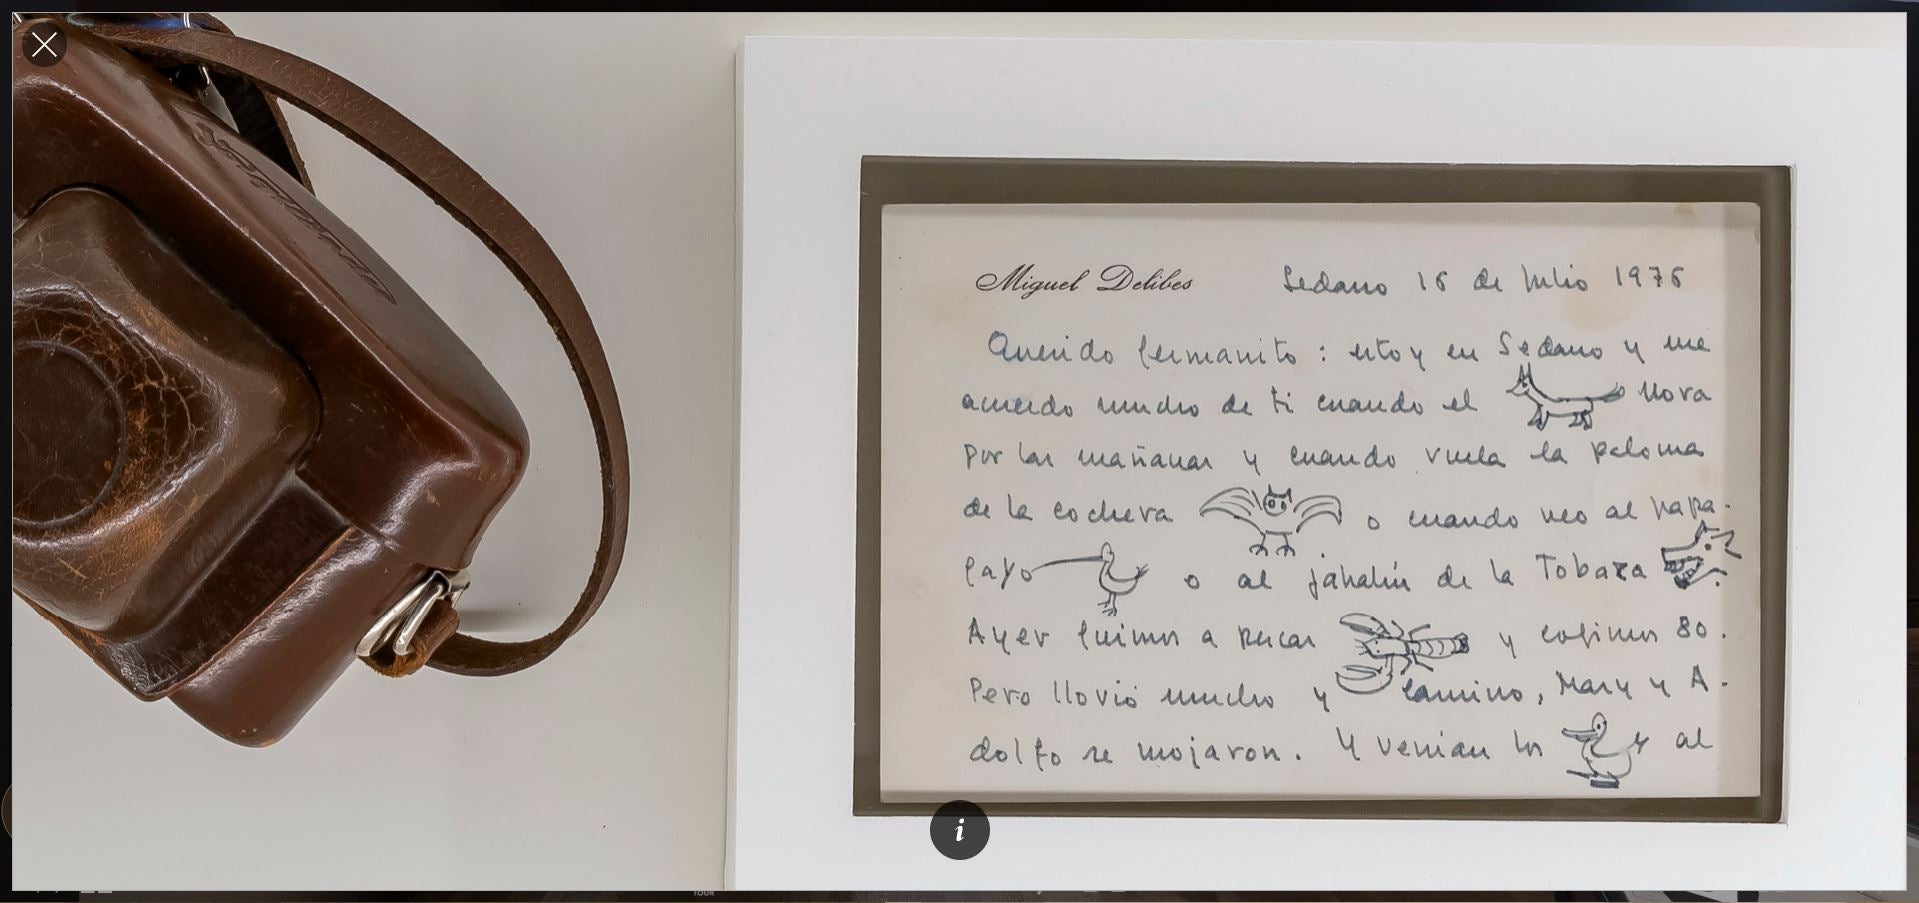 Miguel Delibes
Sedano 16 de Julio 1976
Querido Germanito: estoy en Sedano y me
acuerdo mucho de ti cuando el llora
por las mañanas y cuando vuela la paloma
de la cochera o cuando veo al papa-
gayo o al jabalín de la Tobaza
Ayer fuimos a pescar y cogimos 80.
Pero llovió mucho y Camino, Mary y A-
dolfo se mojaron. Y venían los al
i
TOUR